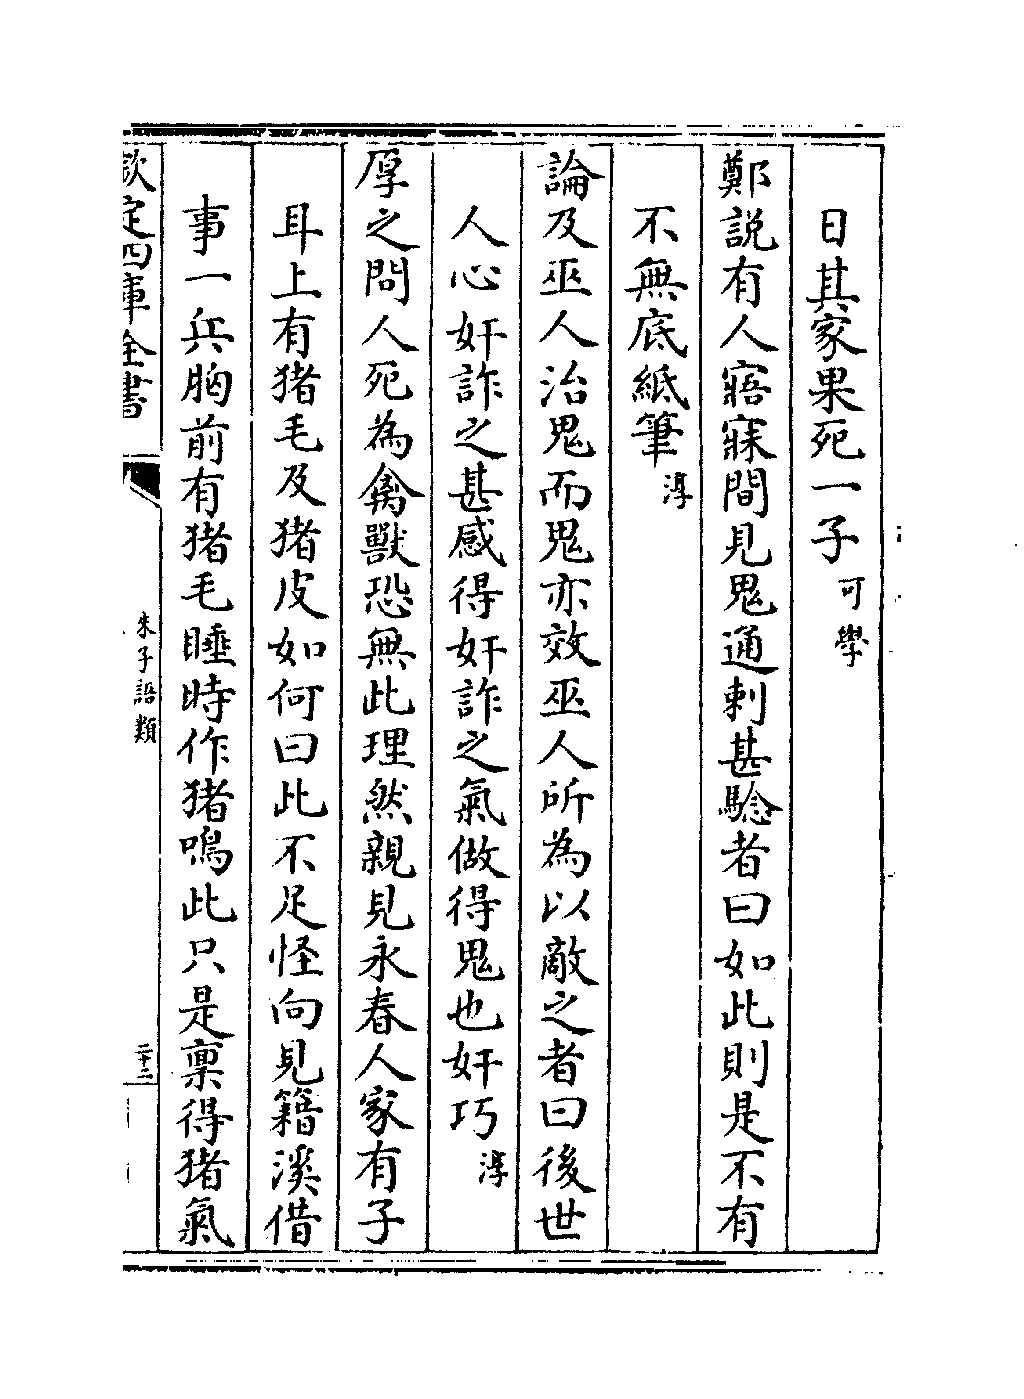 日其家果死一子可學
鄭説有人寤寐間見鬼通刺甚驗者曰如此則是不有
不無底紙筆淳
論及巫人治鬼而鬼亦效巫人所為以敵之者曰後世
人心奸詐之甚感得奸詐之氣做得鬼也奸巧淳
厚之問人死為禽獸恐無此理然親見永春人家有子
耳上有猪毛及猪皮如何曰此不足怪向見籍溪借
事一兵胸前有猪毛睡時作猪鳴此只是禀得猪氣
欽定四庫全書
朱子語類
二十二